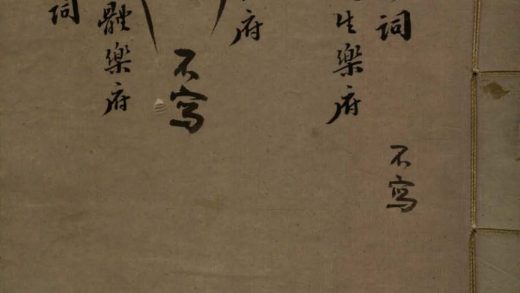 詞 不寫
生樂府
府
不寫
體樂府
詞